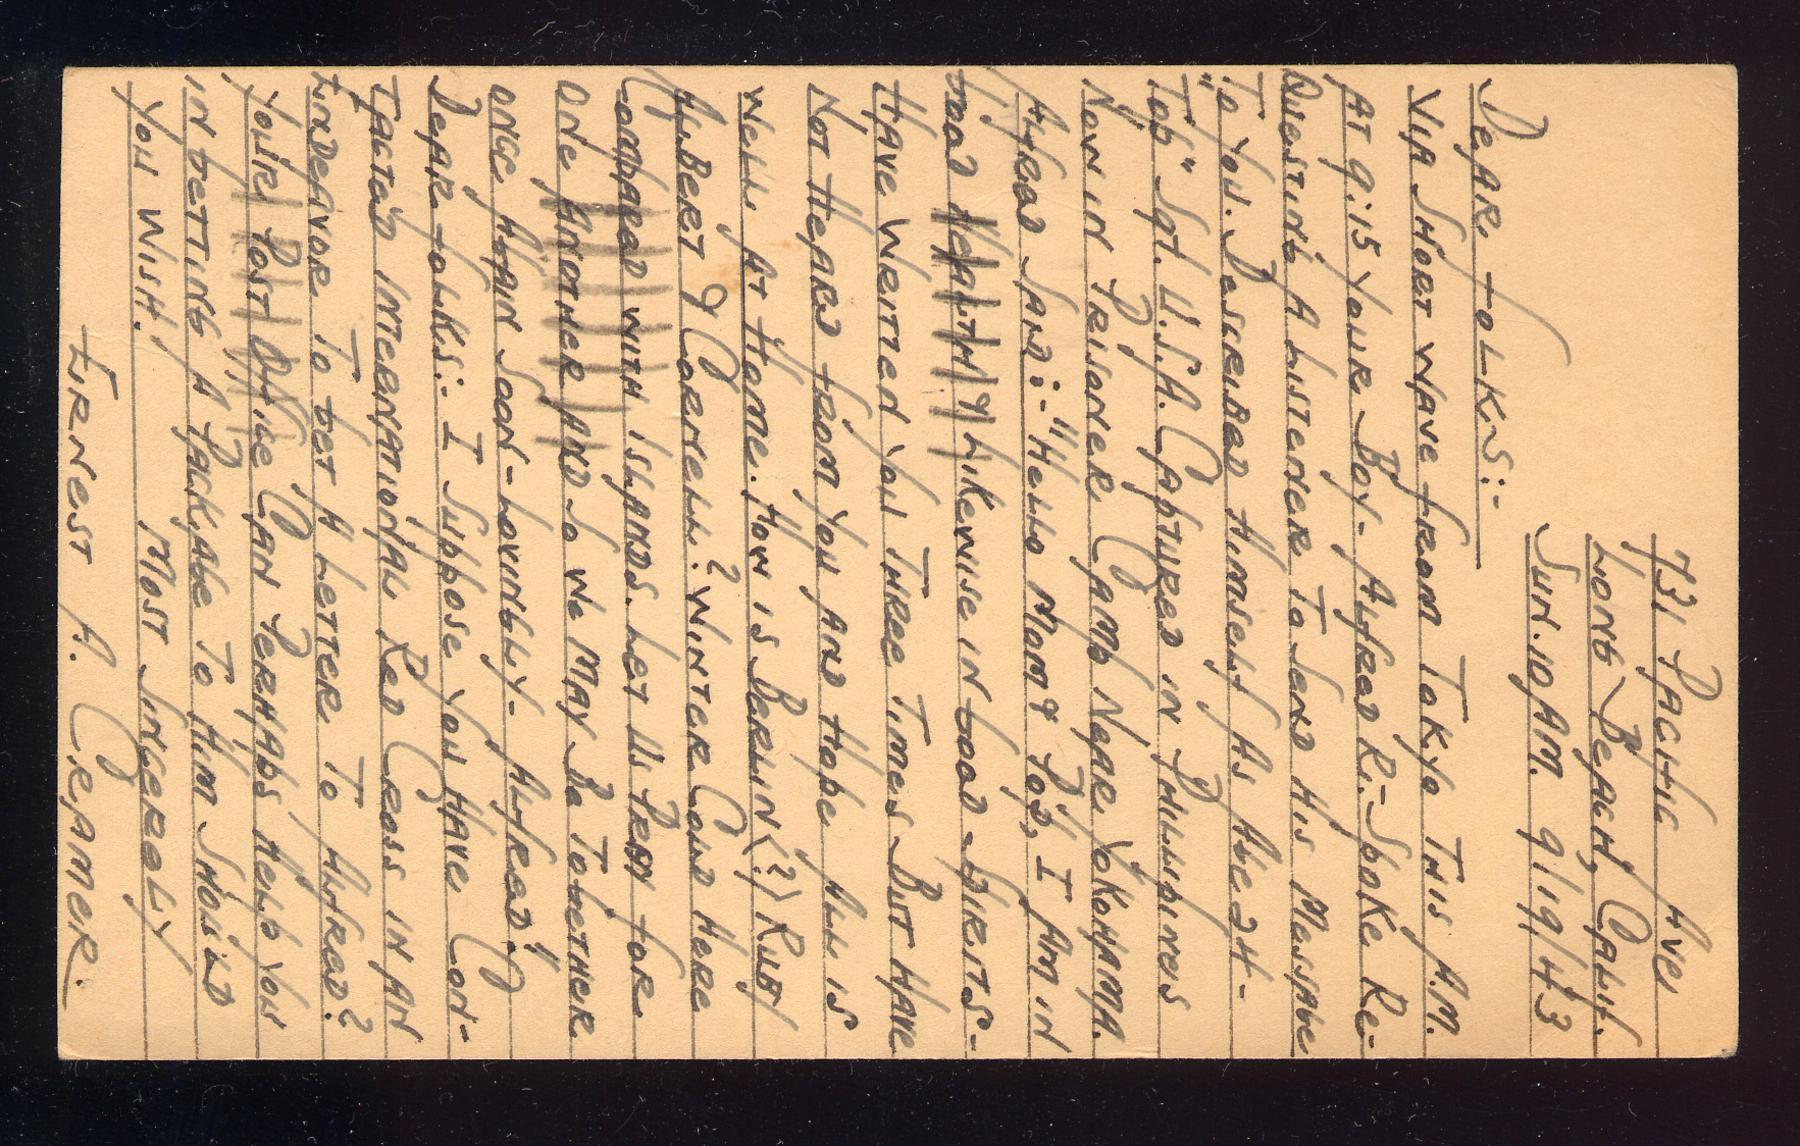 731 Pacific Ave,
Long Beach, Calif.
Sun. 10 AM. 9/19/43
Dear Folks:-
Via Short Wave From Tokyo This A.M.
At 9:15 Your Boy - Alfred R. - Spoke Re-
Questing A Listener To Send His Message
To You. Described Himself As Age 24 -
"Top" Sgt. U.S.A. Captured in Philippines
Now in Prisoner Camp Near Yokohama.
Alfred Said:- "Hello Mom & Pop, I Am in
Good Health & Likewise in Good Spirits -
Have Written You Three Times But Have
Not Heard From You And Hope All is
Well At Home. How is Berlin (?) Ruby
Hubert & Cornell? Winter Cold Here
Compared with Islands. Let Us Pray For
One Another And So We May Be Together
once Again Soon - Lovingly - Alfred."
Dear Folks:- I Suppose You Have Con-
Tacted International Red Cross in An
Endeavor To Get A Letter To Alfred?
Your Post Office Can Perhaps Help You
in Getting A Package To Him Should
You Wish! Most Sincerely
Ernest A. Cramer.